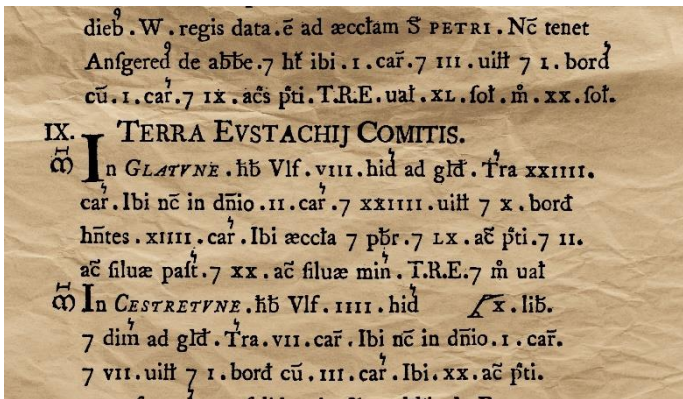 dieb̄ . W . regis data . ē ad æccłam S̄ PETRI . Nc̄ tenet
Anſgered̛ de abb̄e . ⁊ ht̄ ibi . I . car̄ . ⁊ III . uiłł ⁊ I . bord̛
cū . I . car̛ . ⁊ IX . ac̄s p̄ti . T.R.E. uał . XL . ſoł . m̊ . XX . ſoł .
IX. TERRA EVSTACHIJ COMITIS.
M̄ In GLATVNE . ħb̄ Vlf . VIII . hid̛ ad głd̛ . Tra̛ XXIIII .
car̛ . Ibi nc̄ in dn̄io . II . car̛ . ⁊ XXIIII . uiłł ⁊ X . bord̄
hn̄tes . XIIII . car̛ . Ibi æccła ⁊ pb̄r . ⁊ LX . ac̄ p̄ti . ⁊ II .
ac̄ ſiluæ paſt̛ . ⁊ XX . ac̄ ſiluæ min̛ . T.R.E. ⁊ m̊ uał
M̄ In CESTRETVNE . ħb̄ Vlf . IIII . hid̛ X̄ . lib̄ .
⁊ dim̛ ad głd̛ . Tra̛ . VII . car̄ . Ibi nc̄ in dn̄io . I . car̛ .
⁊ VII . uiłł ⁊ I . bord̛ cū . III . car̛ . Ibi . XX . ac̄ p̄ti .